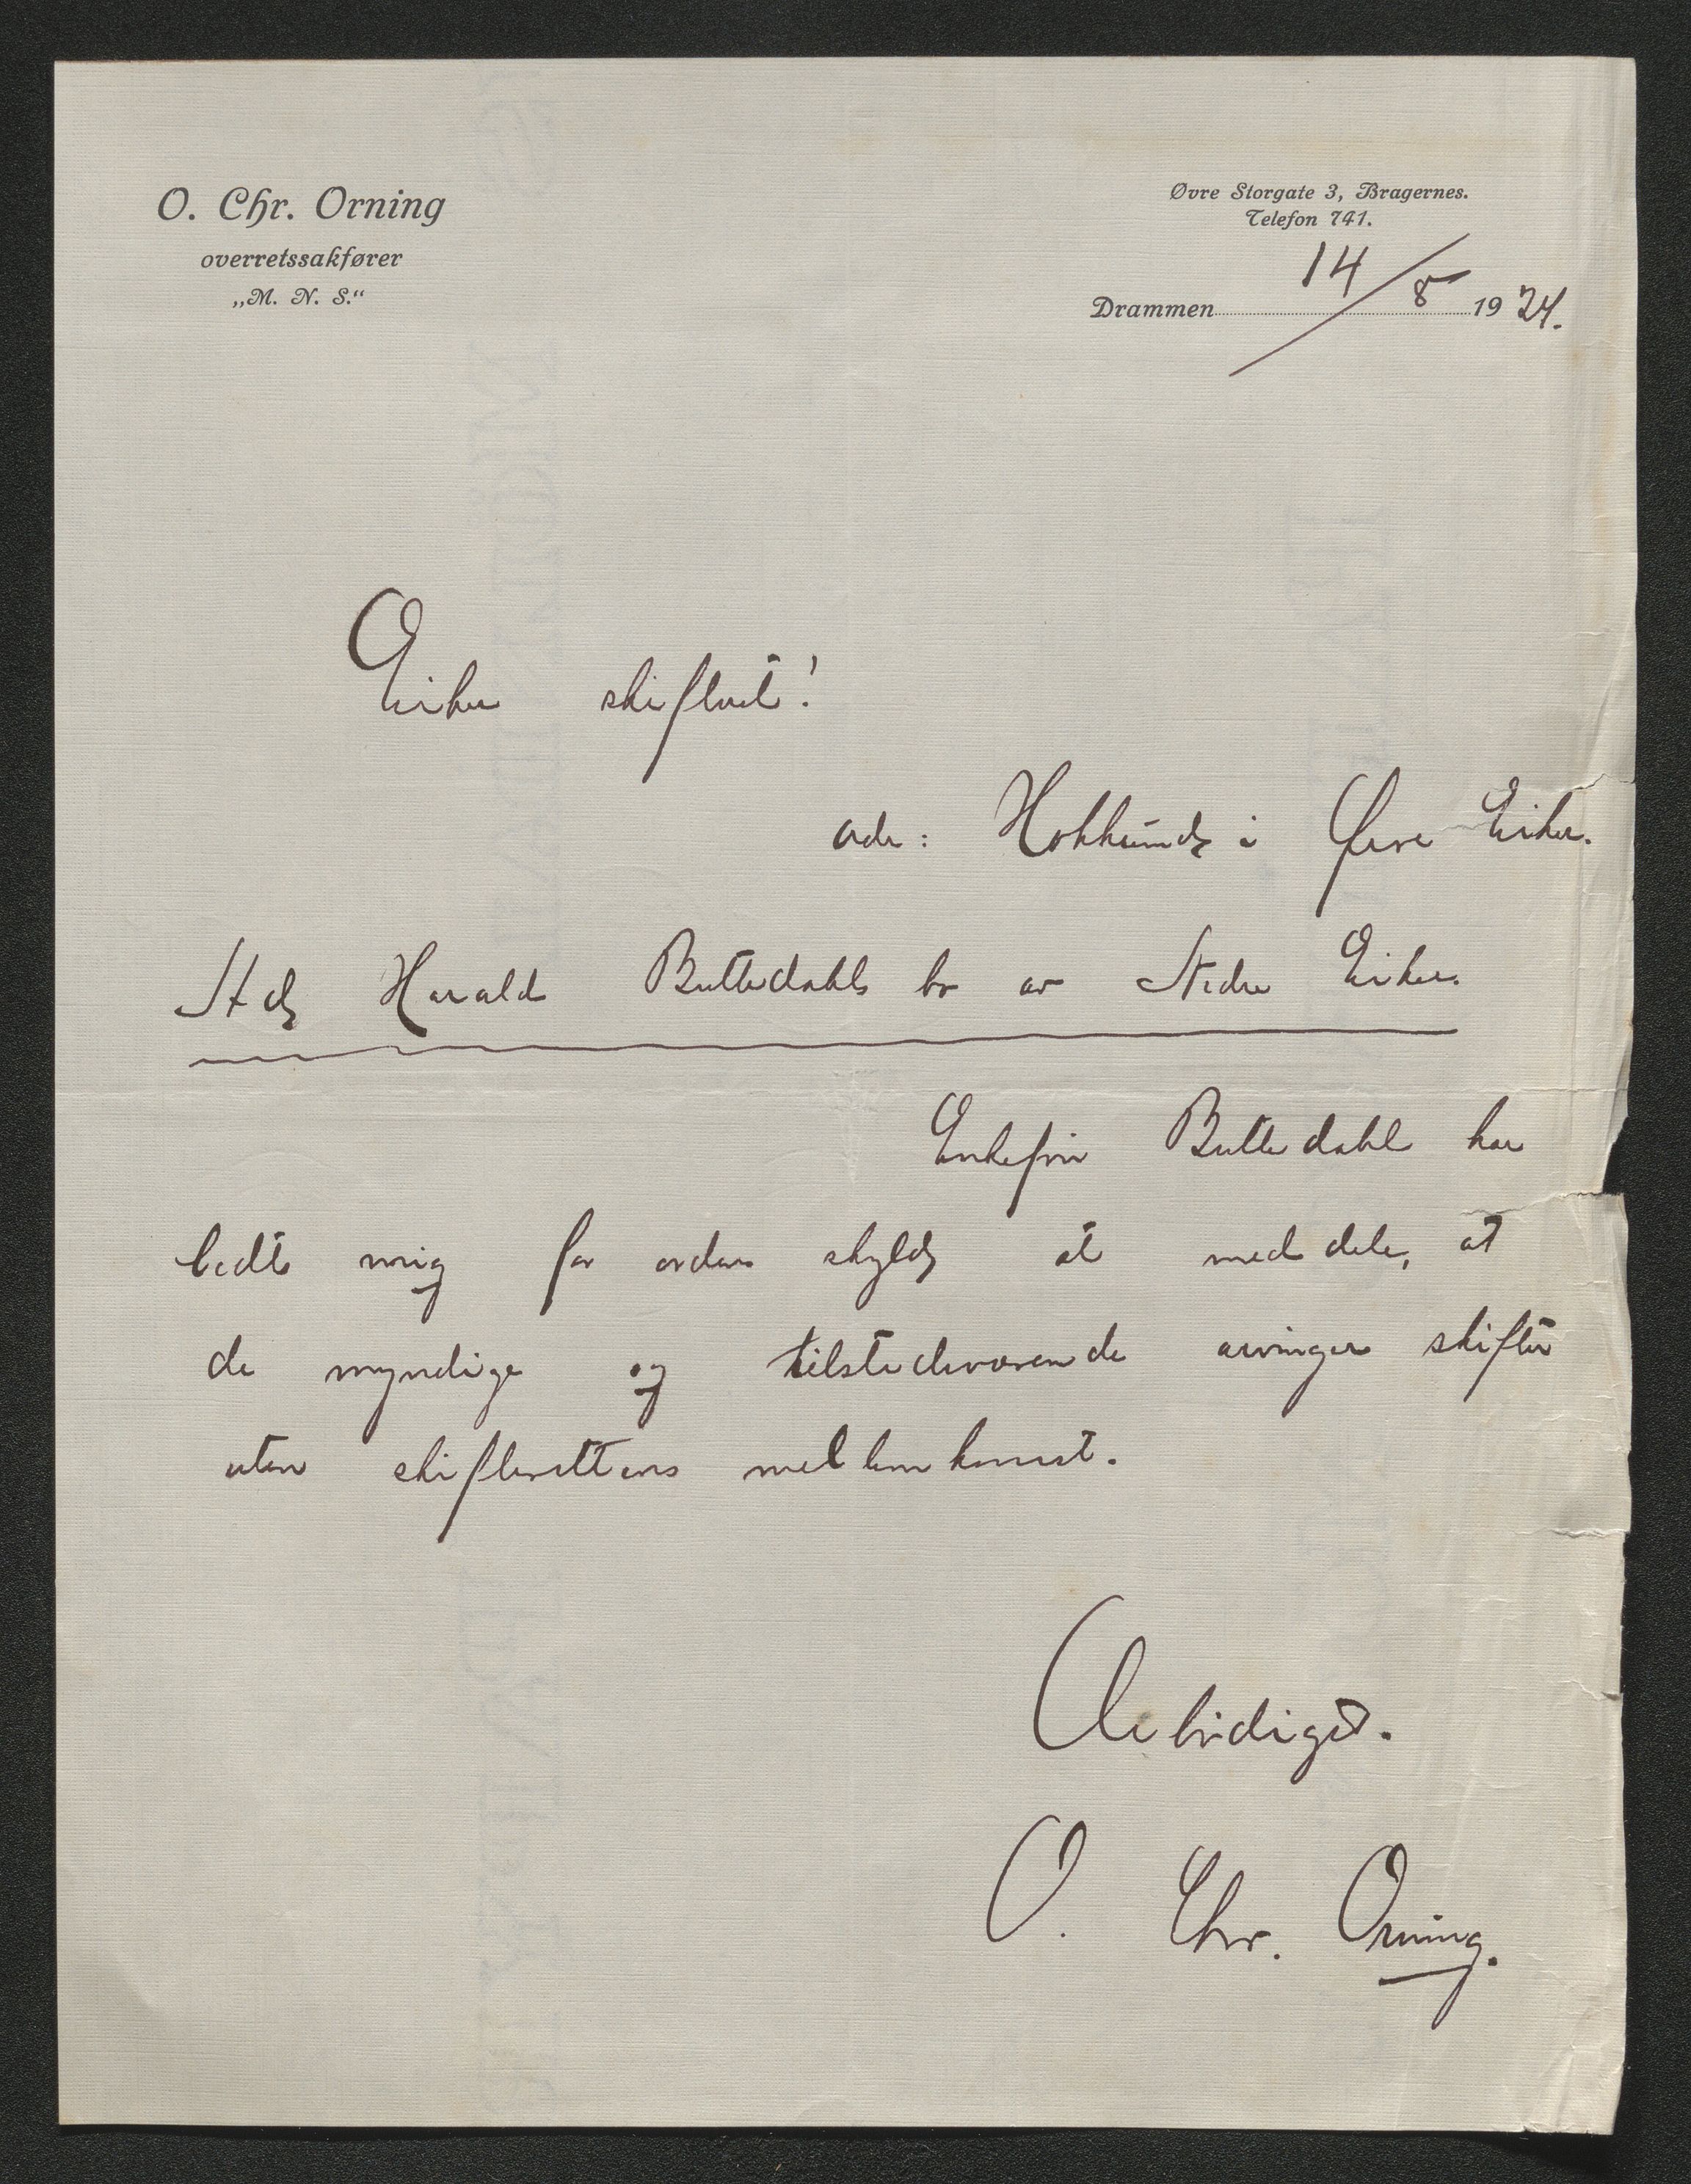 O. Chr. Orning
overretssakfører
„M. N. S.“
Øvre Storgate 3, Bragernes.
Telefon 741.
Drammen 14/8 1924.
Eiker skifteret!
adr: Hokksund i Øvre Eiker.
Harald Butledahls bo av Nedre Eiker.
Enkefru Butledahl har
bedt mig for ordens skyld at meddele, at
de myndige og tilstedeværende arvinger skifter
uten skifterettens mellemkomst.
Ærbødigst.
O. Chr. Orning.